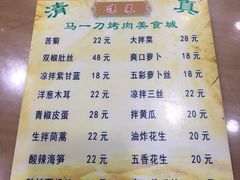 清 凉菜 真
马一刀烤肉美食城
苦菊 22 元 大拌菜 28 元
双椒肚丝 48 元 爽口萝卜 18 元
凉拌紫甘蓝 18 元 五彩萝卜丝 22 元
洋葱木耳 22 元 凉拌三丝 22 元
青椒皮蛋 28 元 拌黄瓜 20 元
生拌茼蒿 22 元 油炸花生 20 元
酸辣海笋 22 元 五香花生 20 元
元 20 元